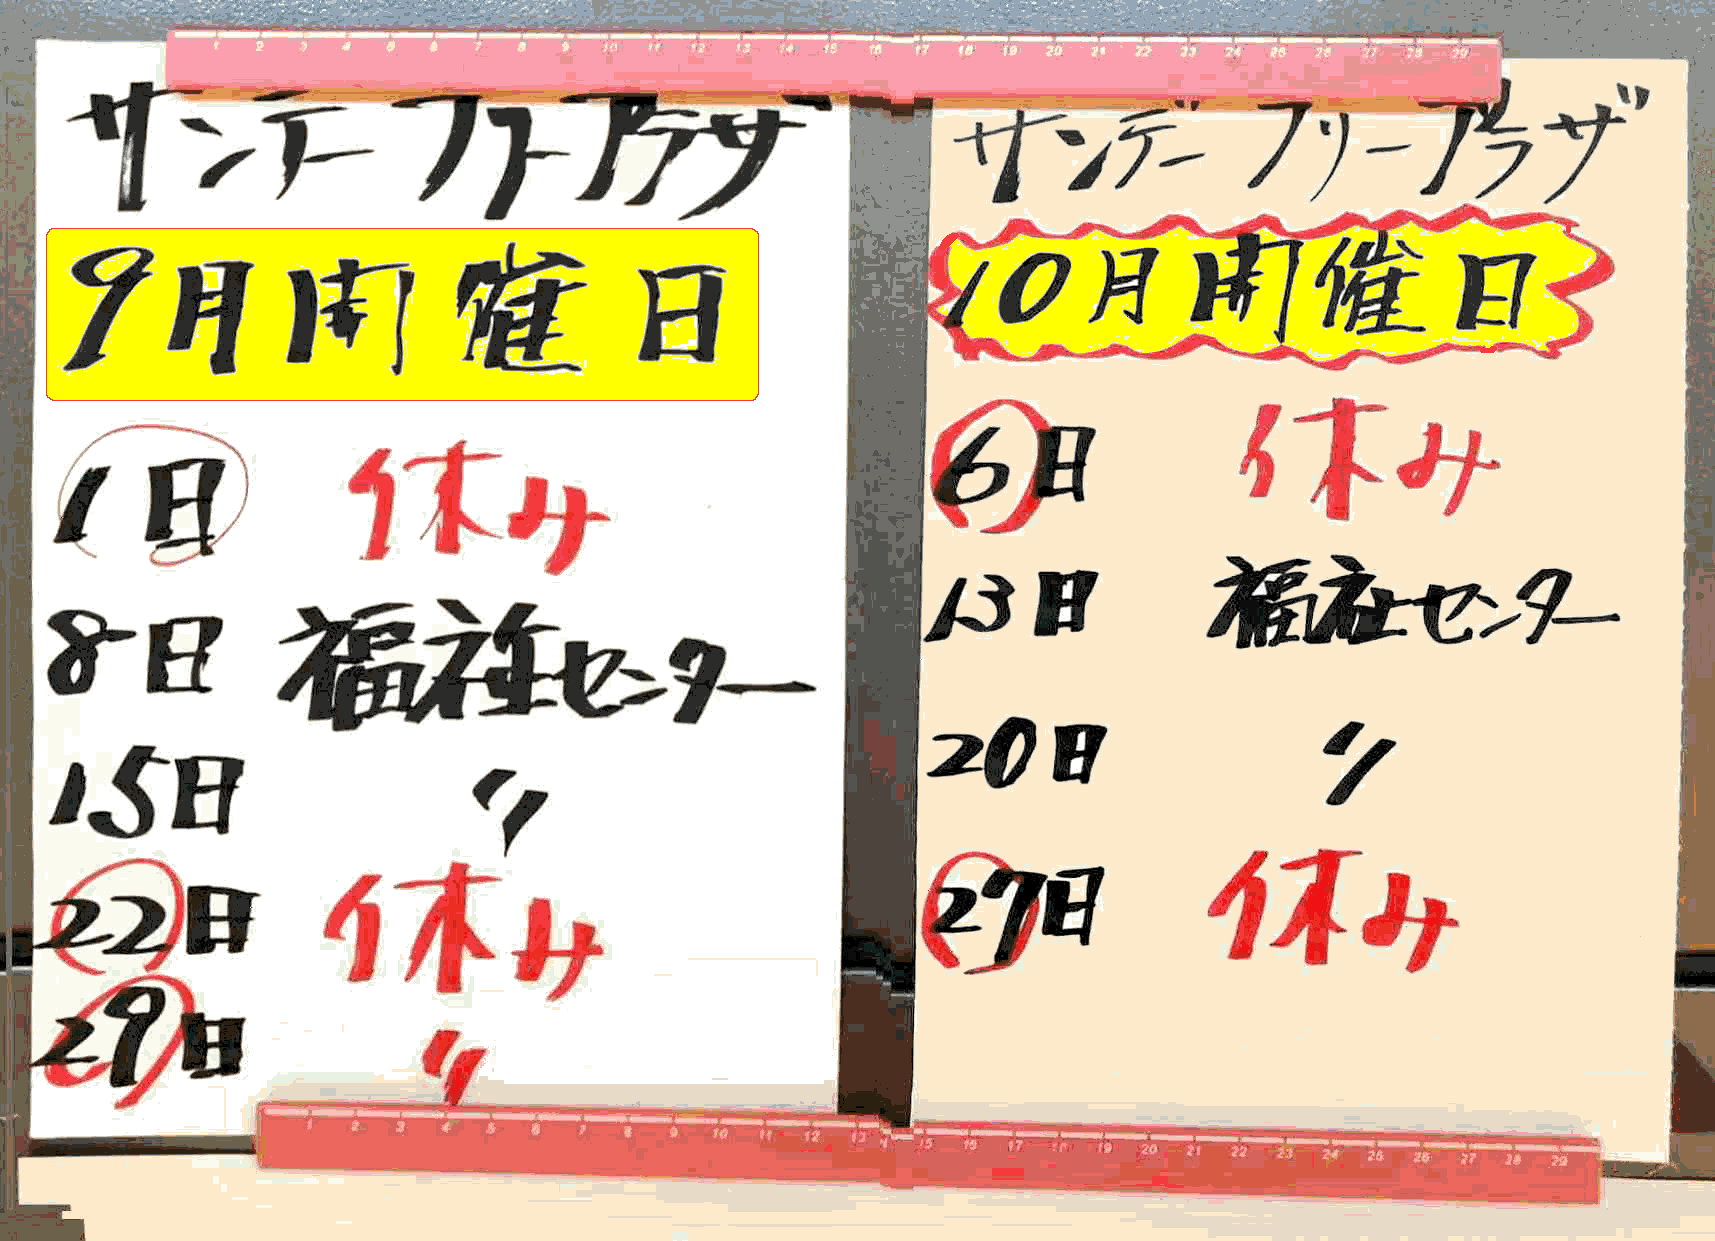 サンデーフリープラザ
9月開催日
1日 休み
8日 福祉センター
15日 〃
22日 休み
29日 〃
サンデーフリープラザ
10月開催日
6日 休み
13日 福祉センター
20日 〃
27日 休み
1 2 3 4 5 6 7 8 9 10 11 12 13 14 15 16 17 18 19 20 21 22 23 24 25 26 27 28 29
1 2 3 4 5 6 7 8 9 10 11 12 13 15 16 17 18 19 20 21 22 23 24 25 26 27 28 29